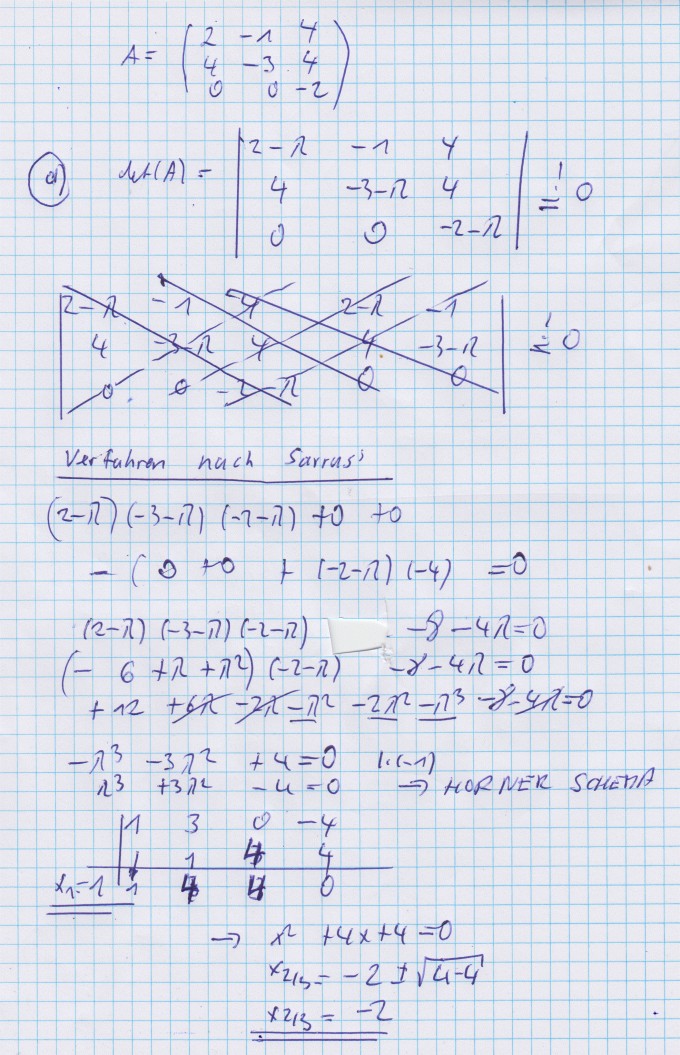 A = ( 2 -1 4
4 -3 4
0 0 -2 )
a) det(A) = | 2-λ -1 4
4 -3-λ 4
0 0 -2-λ | =! 0
| 2-λ -1 4 2-λ -1
4 -3-λ 4 4 -3-λ | =! 0
0 0 -2-λ 0 0
Verfahren nach Sarrus:
(2-λ) (-3-λ) (-2-λ) +0 +0
- ( 0 +0 + (-2-λ) (-4) =0
(2-λ) (-3-λ) (-2-λ) -8 -4λ=0
(- 6 +λ +λ²) (-2-λ) -8-4λ=0
+ 12 +6λ -2λ -λ² -2λ² -λ³ -8-4λ=0
-λ³ -3λ² +4=0 |·(-1)
λ³ +3λ² -4=0 → HORNER SCHEMA
1 3 0 -4
↓ 1 4 4
x₁=1 1 4 4 0
→ x² +4x+4=0
x2/3 = -2 ± √4-4
x2/3 = -2